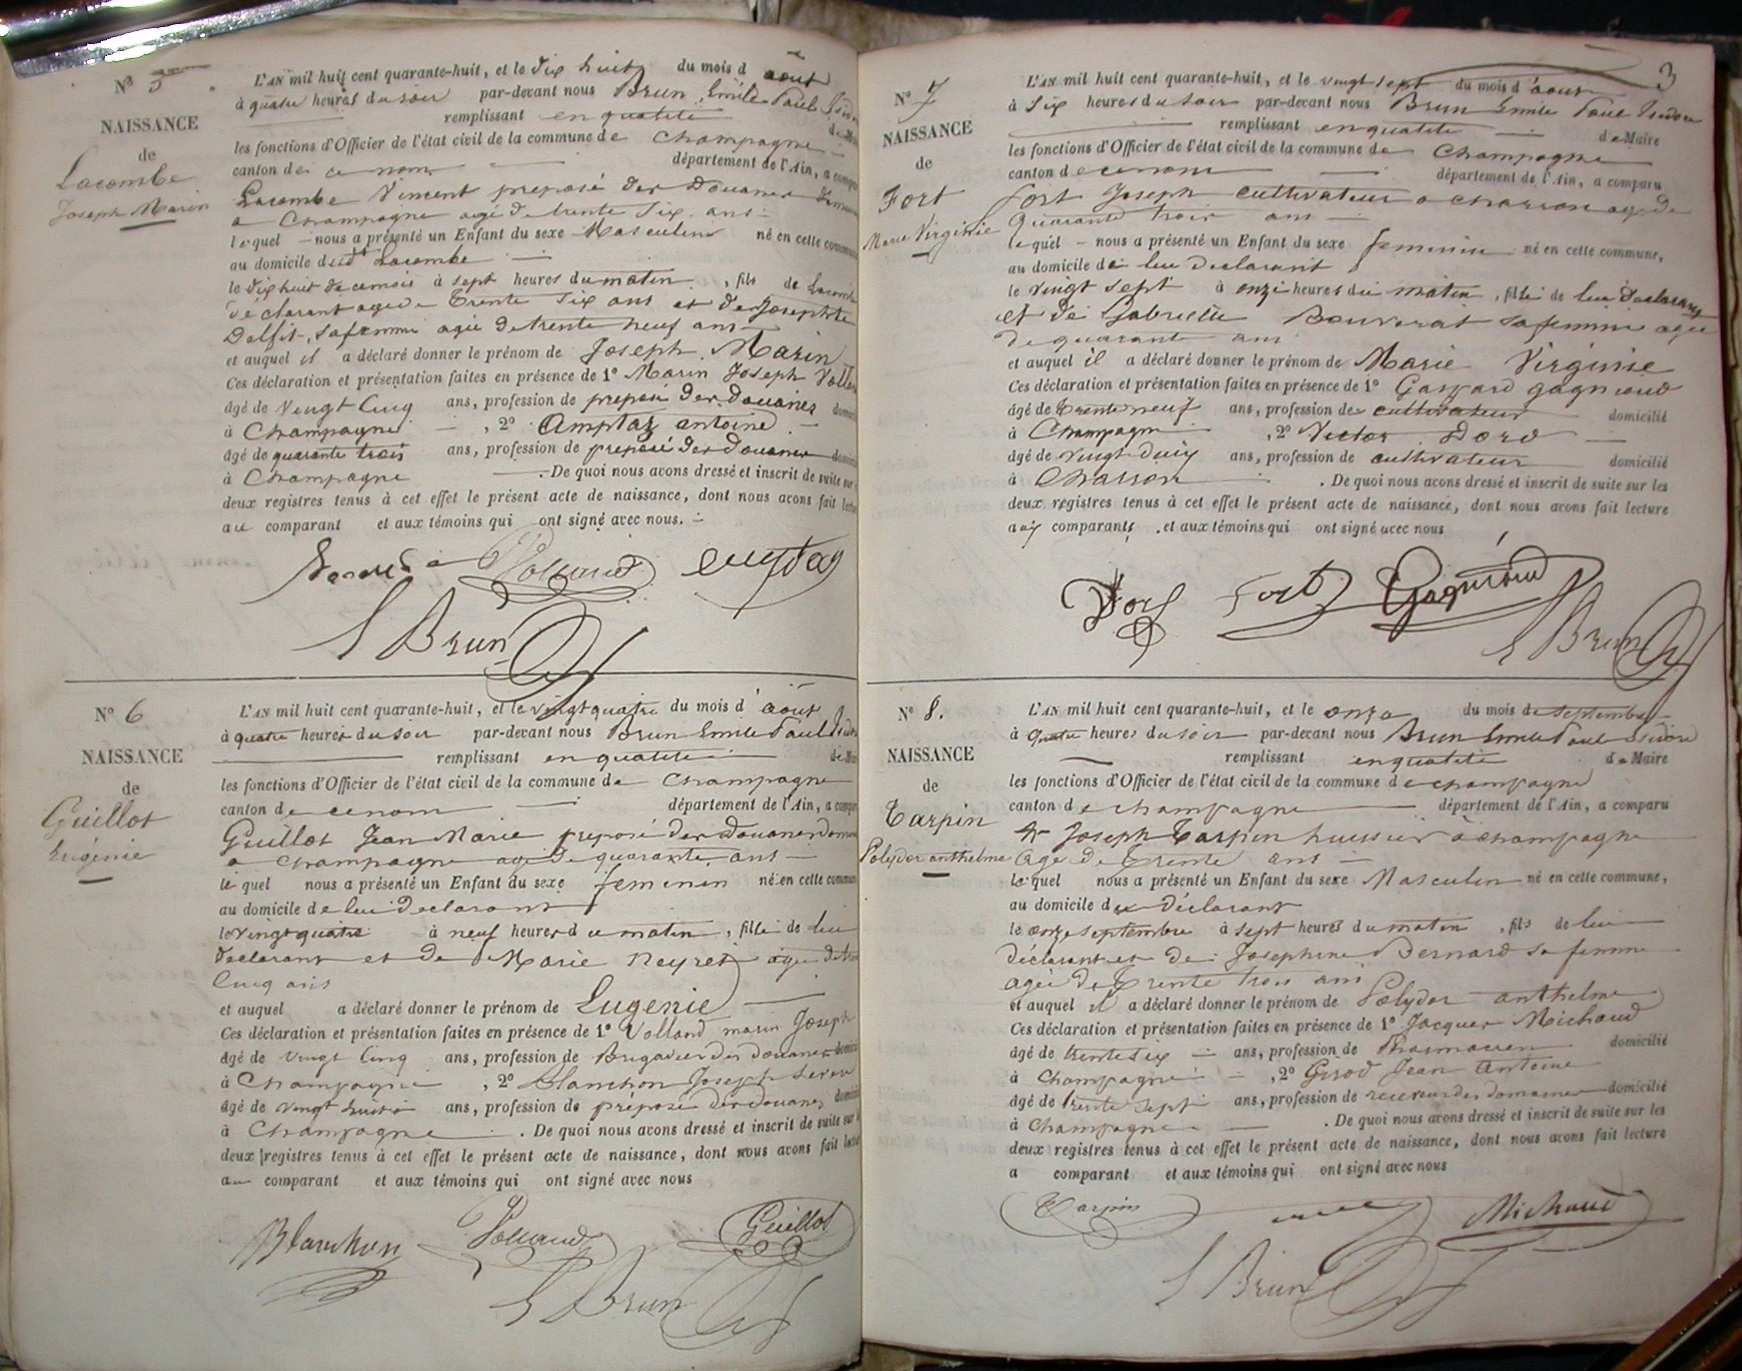 N° 5
NAISSANCE
de
Lacombe
Joseph Marin
L'AN mil huit cent quarante-huit, et le dix huit du mois d août
à quatre heures du soir par-devant nous Brun Emile Paul Isidore
remplissant en qualité de Maire
les fonctions d'Officier de l'état civil de la commune de Champagne
canton de ce nom département de l'Ain, a comparu
Lacombe Vincent preposé des Douanes
a Champagne agé de trente six ans
le quel nous a présenté un Enfant du sexe Masculin né en cette commune
au domicile dudit Lacombe
le dix huit de ce mois à sept heures du matin, fils de Lacombe
déclarant agé de Trente six ans et de Josephte
Delfit, sa femme agée de trente neuf ans
et auquel il a déclaré donner le prénom de Joseph Marin
Ces déclaration et présentation faites en présence de 1° Marin Joseph
âgé de Vingt Cinq ans, profession de preposé des Douanes
à Champagne, 2° Amptaz antoine
âgé de quarante trois ans, profession de preposé des Douanes
à Champagne. De quoi nous avons dressé et inscrit de suite sur
deux registres tenus à cet effet le présent acte de naissance, dont nous avons fait lecture
au comparant et aux témoins qui ont signé avec nous.
Volland
E Brun
N° 6
NAISSANCE
de
Guillot
Eugénie
L'AN mil huit cent quarante-huit, et le vingt quatre du mois d'août
à quatre heures du soir par-devant nous Brun Emile Paul Isidore
remplissant en qualité de Maire
les fonctions d'Officier de l'état civil de la commune de Champagne
canton de ce nom département de l'Ain, a comparu
Guillot Jean Marie preposé des Douanes
a Champagne agé de quarante ans
le quel nous a présenté un Enfant du sexe feminin né en cette commune
au domicile de lui Declarant
le vingt quatre à neuf heures du matin, fille de lui
declarant et de Marie Neyret agée de
Cinq ans
et auquel a déclaré donner le prénom de Eugenie
Ces déclaration et présentation faites en présence de 1° Volland marin Joseph
âgé de vingt Cinq ans, profession de Brigadier des douanes
à Champagne, 2° Blanchon Joseph
âgé de vingt huit ans, profession de préposé des douanes
à Champagne. De quoi nous avons dressé et inscrit de suite sur
deux registres tenus à cet effet le présent acte de naissance, dont nous avons fait lecture
au comparant et aux témoins qui ont signé avec nous
Blanchon Volland Guillot
E Brun
3
N° 7
NAISSANCE
de
Fort
Marie Virginie
L'AN mil huit cent quarante-huit, et le vingt sept du mois d'août
à Six heures du soir par-devant nous Brun Emile Paul Isidore
remplissant en qualité de Maire
les fonctions d'Officier de l'état civil de la commune de Champagne
canton de ce nom département de l'Ain, a comparu
fort Joseph cultivateur a agé de
Quarante trois ans
le quel nous a présenté un Enfant du sexe feminin né en cette commune,
au domicile de lui Declarant
le vingt sept à onze heures du matin, fille de lui Declarant
et de Gabrielle Bouverat sa femme agée
de quarante ans
et auquel il a déclaré donner le prénom de Marie Virginie
Ces déclaration et présentation faites en présence de 1° Gaspard gagnioud
âgé de Trente neuf ans, profession de cultivateur domicilié
à Champagne, 2° Victor
âgé de Vingt Deux ans, profession de cultivateur domicilié
à. De quoi nous avons dressé et inscrit de suite sur les
deux registres tenus à cet effet le présent acte de naissance, dont nous avons fait lecture
aux comparants et aux témoins qui ont signé avec nous
Fort Gagnioud
E Brun
N° 8.
NAISSANCE
de
Tarpin
Polydor anthelme
L'AN mil huit cent quarante-huit, et le onze du mois de septembre
à quatre heures du soir par-devant nous Brun Emile Paul Isidore
remplissant en qualité de Maire
les fonctions d'Officier de l'état civil de la commune de champagne
canton de champagne département de l'Ain, a comparu
Mr Joseph Tarpin huissier à champagne
agé de Trente ans
le quel nous a présenté un Enfant du sexe Masculin né en cette commune,
au domicile du déclarant
le onze septembre à sept heures du matin, fils de lui
déclarant et de Josephine Bernard sa femme
agée de Trente trois ans
et auquel il a déclaré donner le prénom de Polydor anthelme
Ces déclaration et présentation faites en présence de 1° Jacques Michaud
âgé de trente six ans, profession de Pharmacien domicilié
à Champagne, 2° Girod Jean Antoine
âgé de trente sept ans, profession de receveur des domaines domicilié
à Champagne. De quoi nous avons dressé et inscrit de suite sur les
deux registres tenus à cet effet le présent acte de naissance, dont nous avons fait lecture
a comparant et aux témoins qui ont signé avec nous
Tarpin Michaud
E Brun